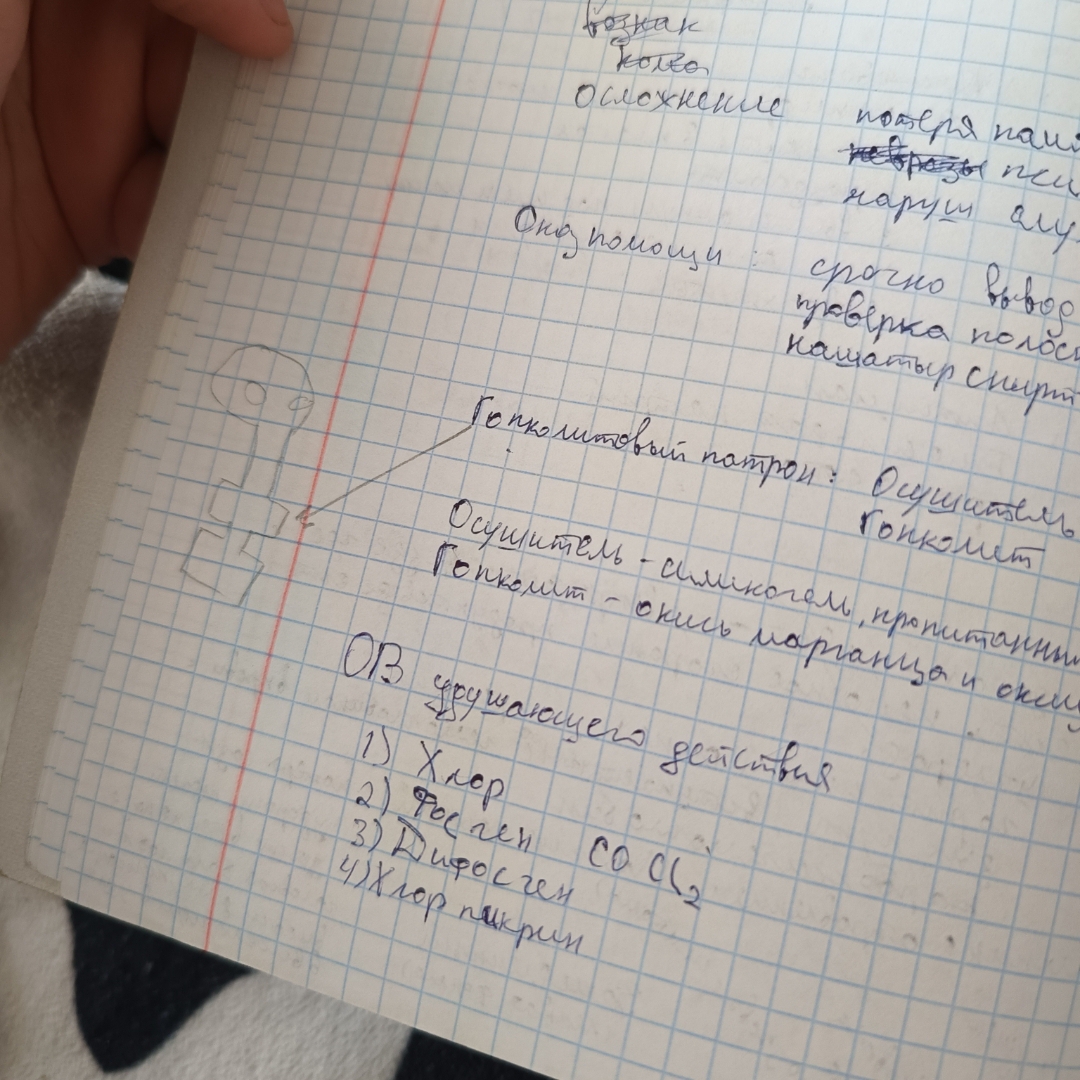 Осложнение потеря
наруш
Оказ помощи : срочно вывод
проверка полос
нашатыр спирт
Гопколитовый патрон: Осушитель
Гопколит
Осушитель - силикогель, пропитанный
Гопколит - окись марганца и окис
ОВ удушающего действия
1) Хлор
2) Фосген COCl2
3) Дифосген
4) Хлор пикрин